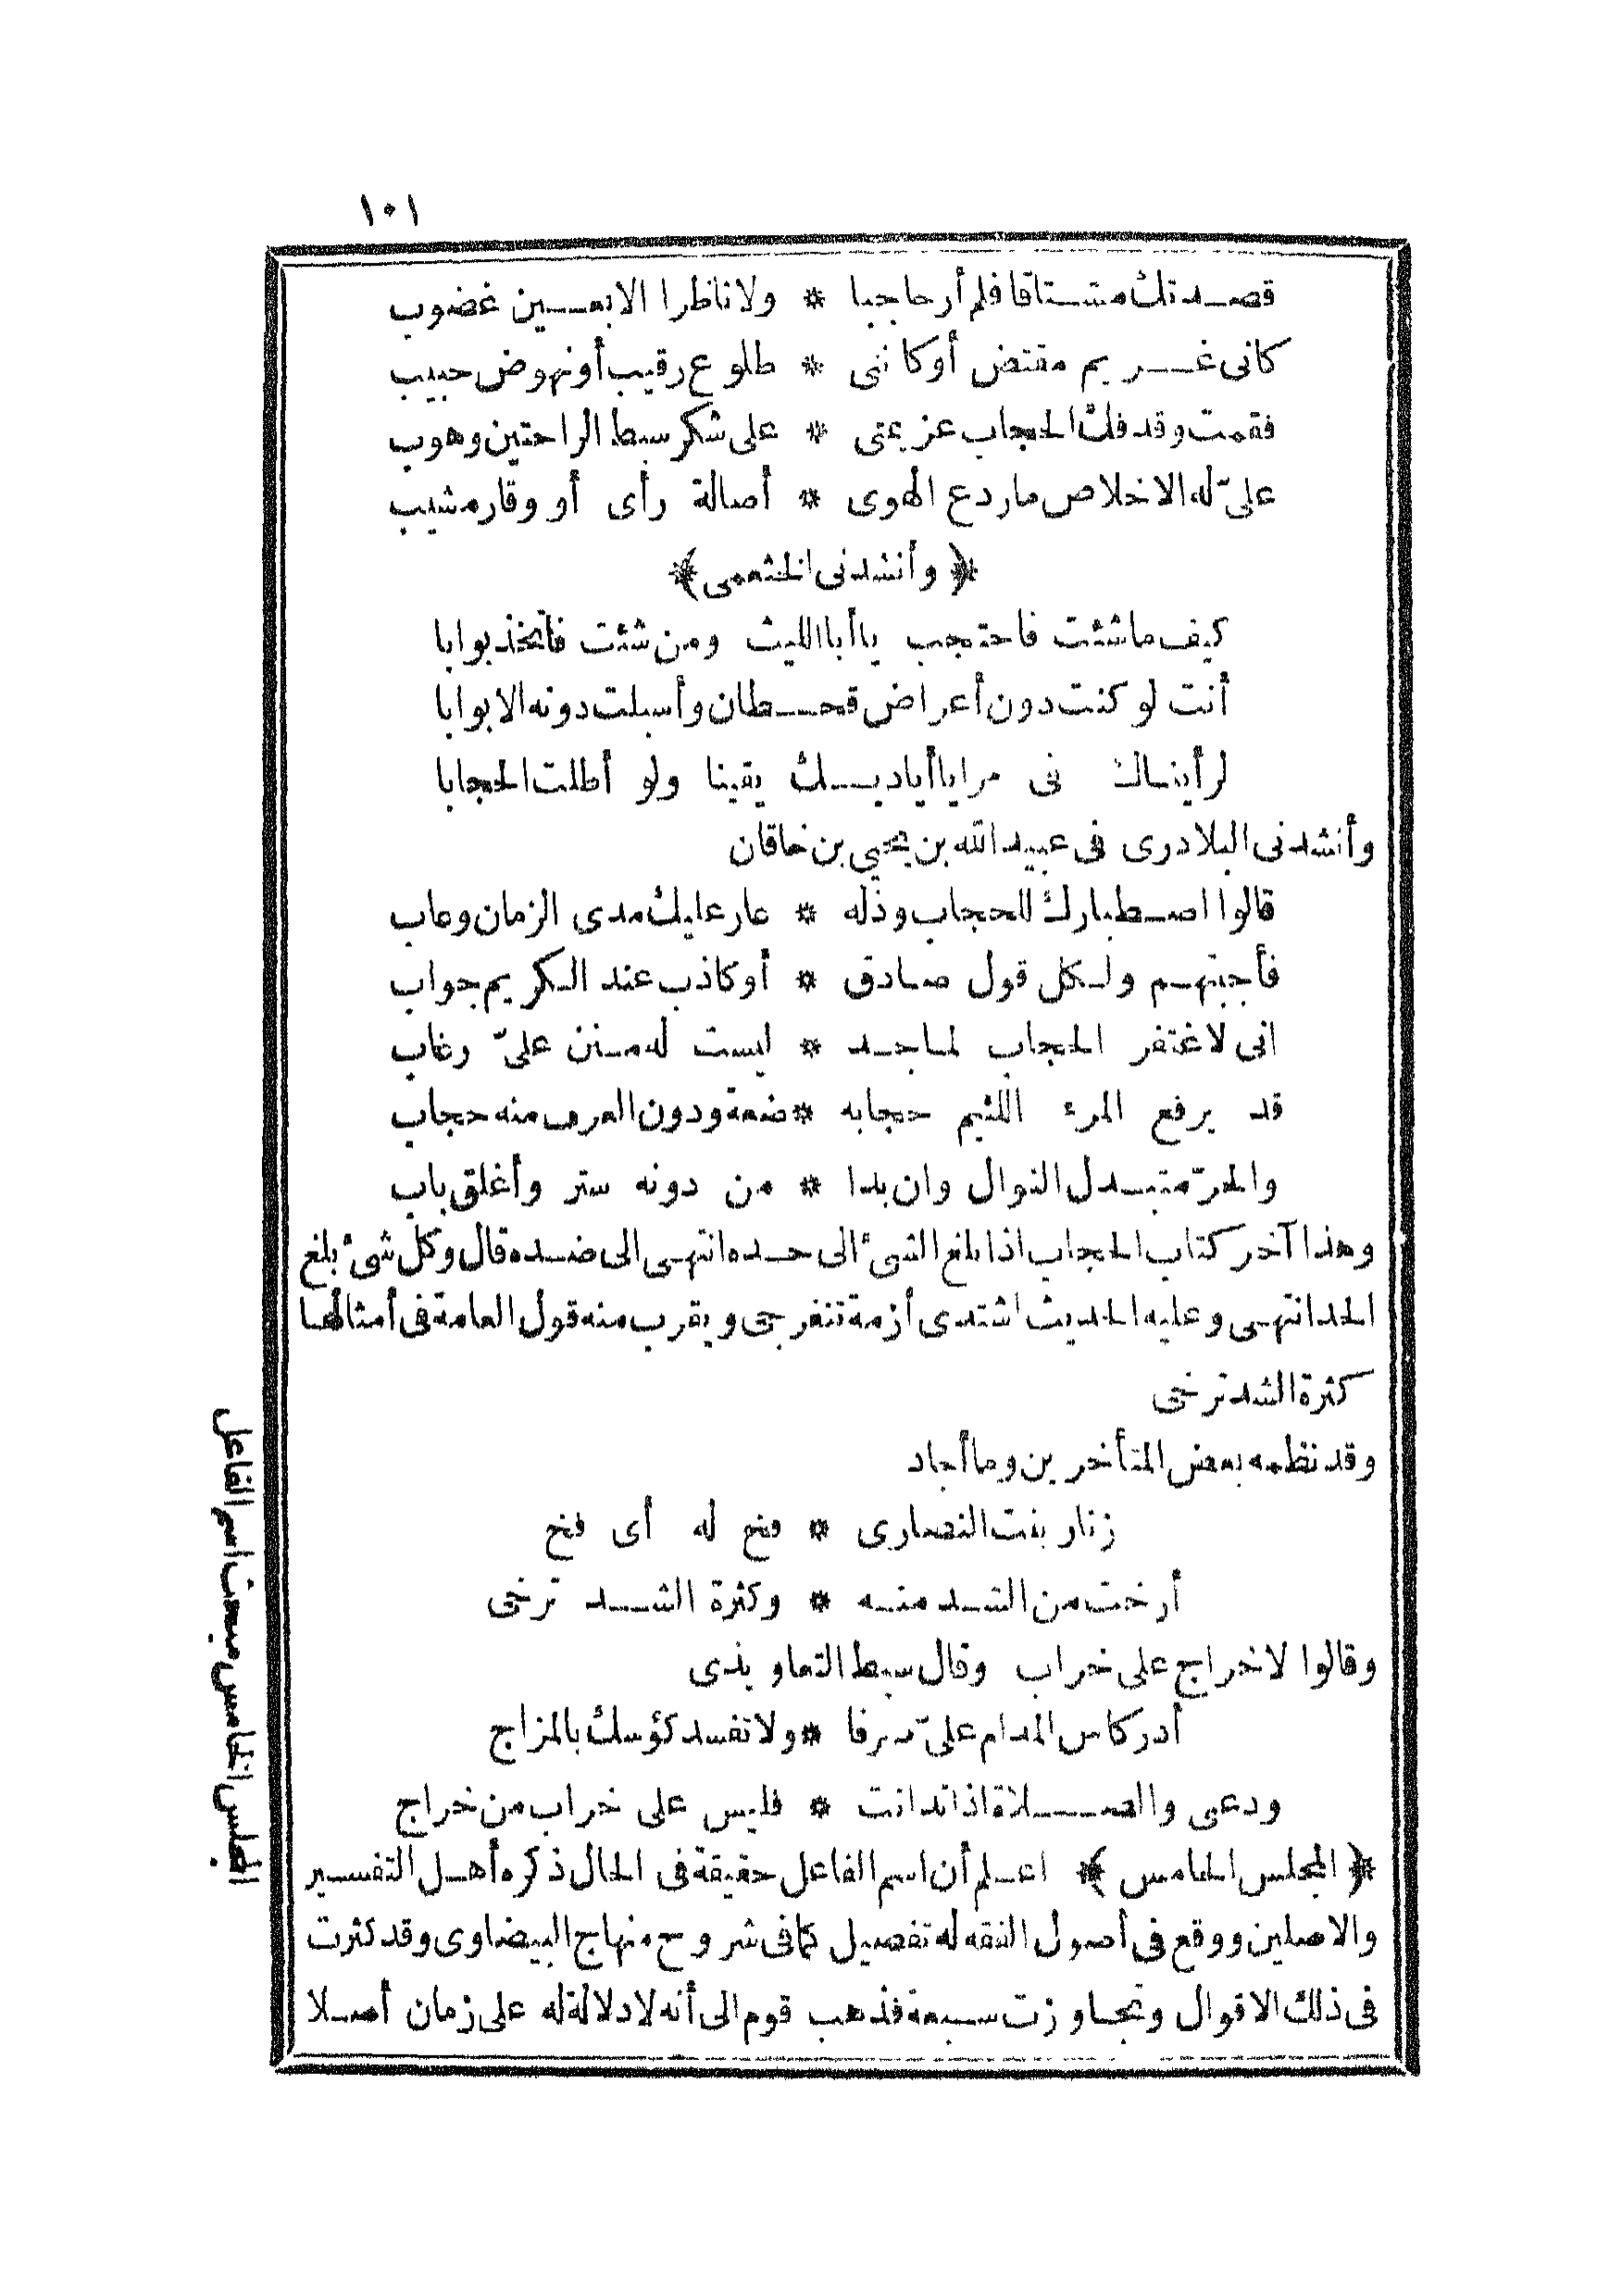 ١٠١
قصدتك مشتاقا فلم أرحاجبا * ولا ناظرا الا بعين غضوب
كانى غريم مقتض أوكاننى * طلوع رقيب أونهوض حبيب
فقمت وقد فلّ الحجاب عزيمتى * على شكر سبط الراحتين وهوب
علىّ له الاخلاص ماردع الهوى * أصالة رأى أو وقار مشيب
﴿ وأنشدنى الخثعمى ﴾
كيف ماشئت فاحتجب ياأبا الليث ومن شئت فاتخذ بوابا
أنت لو كنت دون أعراض قحطان وأسبلت دونه الابوابا
لرأيناك فى مرايا أياديك يقينا ولو أطلت الحجابا
وأنشدنى البلادرى فى عبيد الله بن يحيى بن خاقان
قالوا اصطبارك للحجاب وذله * عار عليك مدى الزمان وعاب
فأجبتهم ولكل قول صادق * أوكاذب عند الكريم جواب
انى لاغتفر الحجاب لماجد * ليست له منن علىّ رغاب
قد يرفع المرء اللئيم حجابه * ضعة ودون العرف منه حجاب
والحرّ مبتدل النوال وان بدا * من دونه ستر وأغلق باب
وهذا آخر كتاب الحجاب اذا بلغ الشئ الى حده انتهى الى ضده قال وكل شئ بلغ
الحد انتهى وعليه الحديث اشتدى أزمة تنفرجى ويقرب منه قول العامة فى أمثالها
كثرة الشد ترخى
وقد نظمه بعض المتأخرين وما أجاد
زنار بنت النصارى * فخ له أى فخ
أرخت من الشد منه * وكثرة الشد ترخى
وقالوا لاخراج على خراب وقال سبط التعاويذى
أدر كاس المدام علىّ صرفا * ولا تفسد كؤسك بالمزاج
ودعى والصلاة اذا تدانت * فليس على خراب من خراج
﴿ المجلس الخامس ﴾ اعلم أن اسم الفاعل حقيقة فى الحال ذكره أهل التفسير
والاصلين ووقع فى أصول الفقه له تفصيل كما فى شروح منهاج البيضاوى وقد كثرت
فى ذلك الاقوال وتجاوزت سبعة فذهب قوم الى أنه لا دلالة له على زمان أصلا
المجلس الخامس مبحث اسم الفاعل